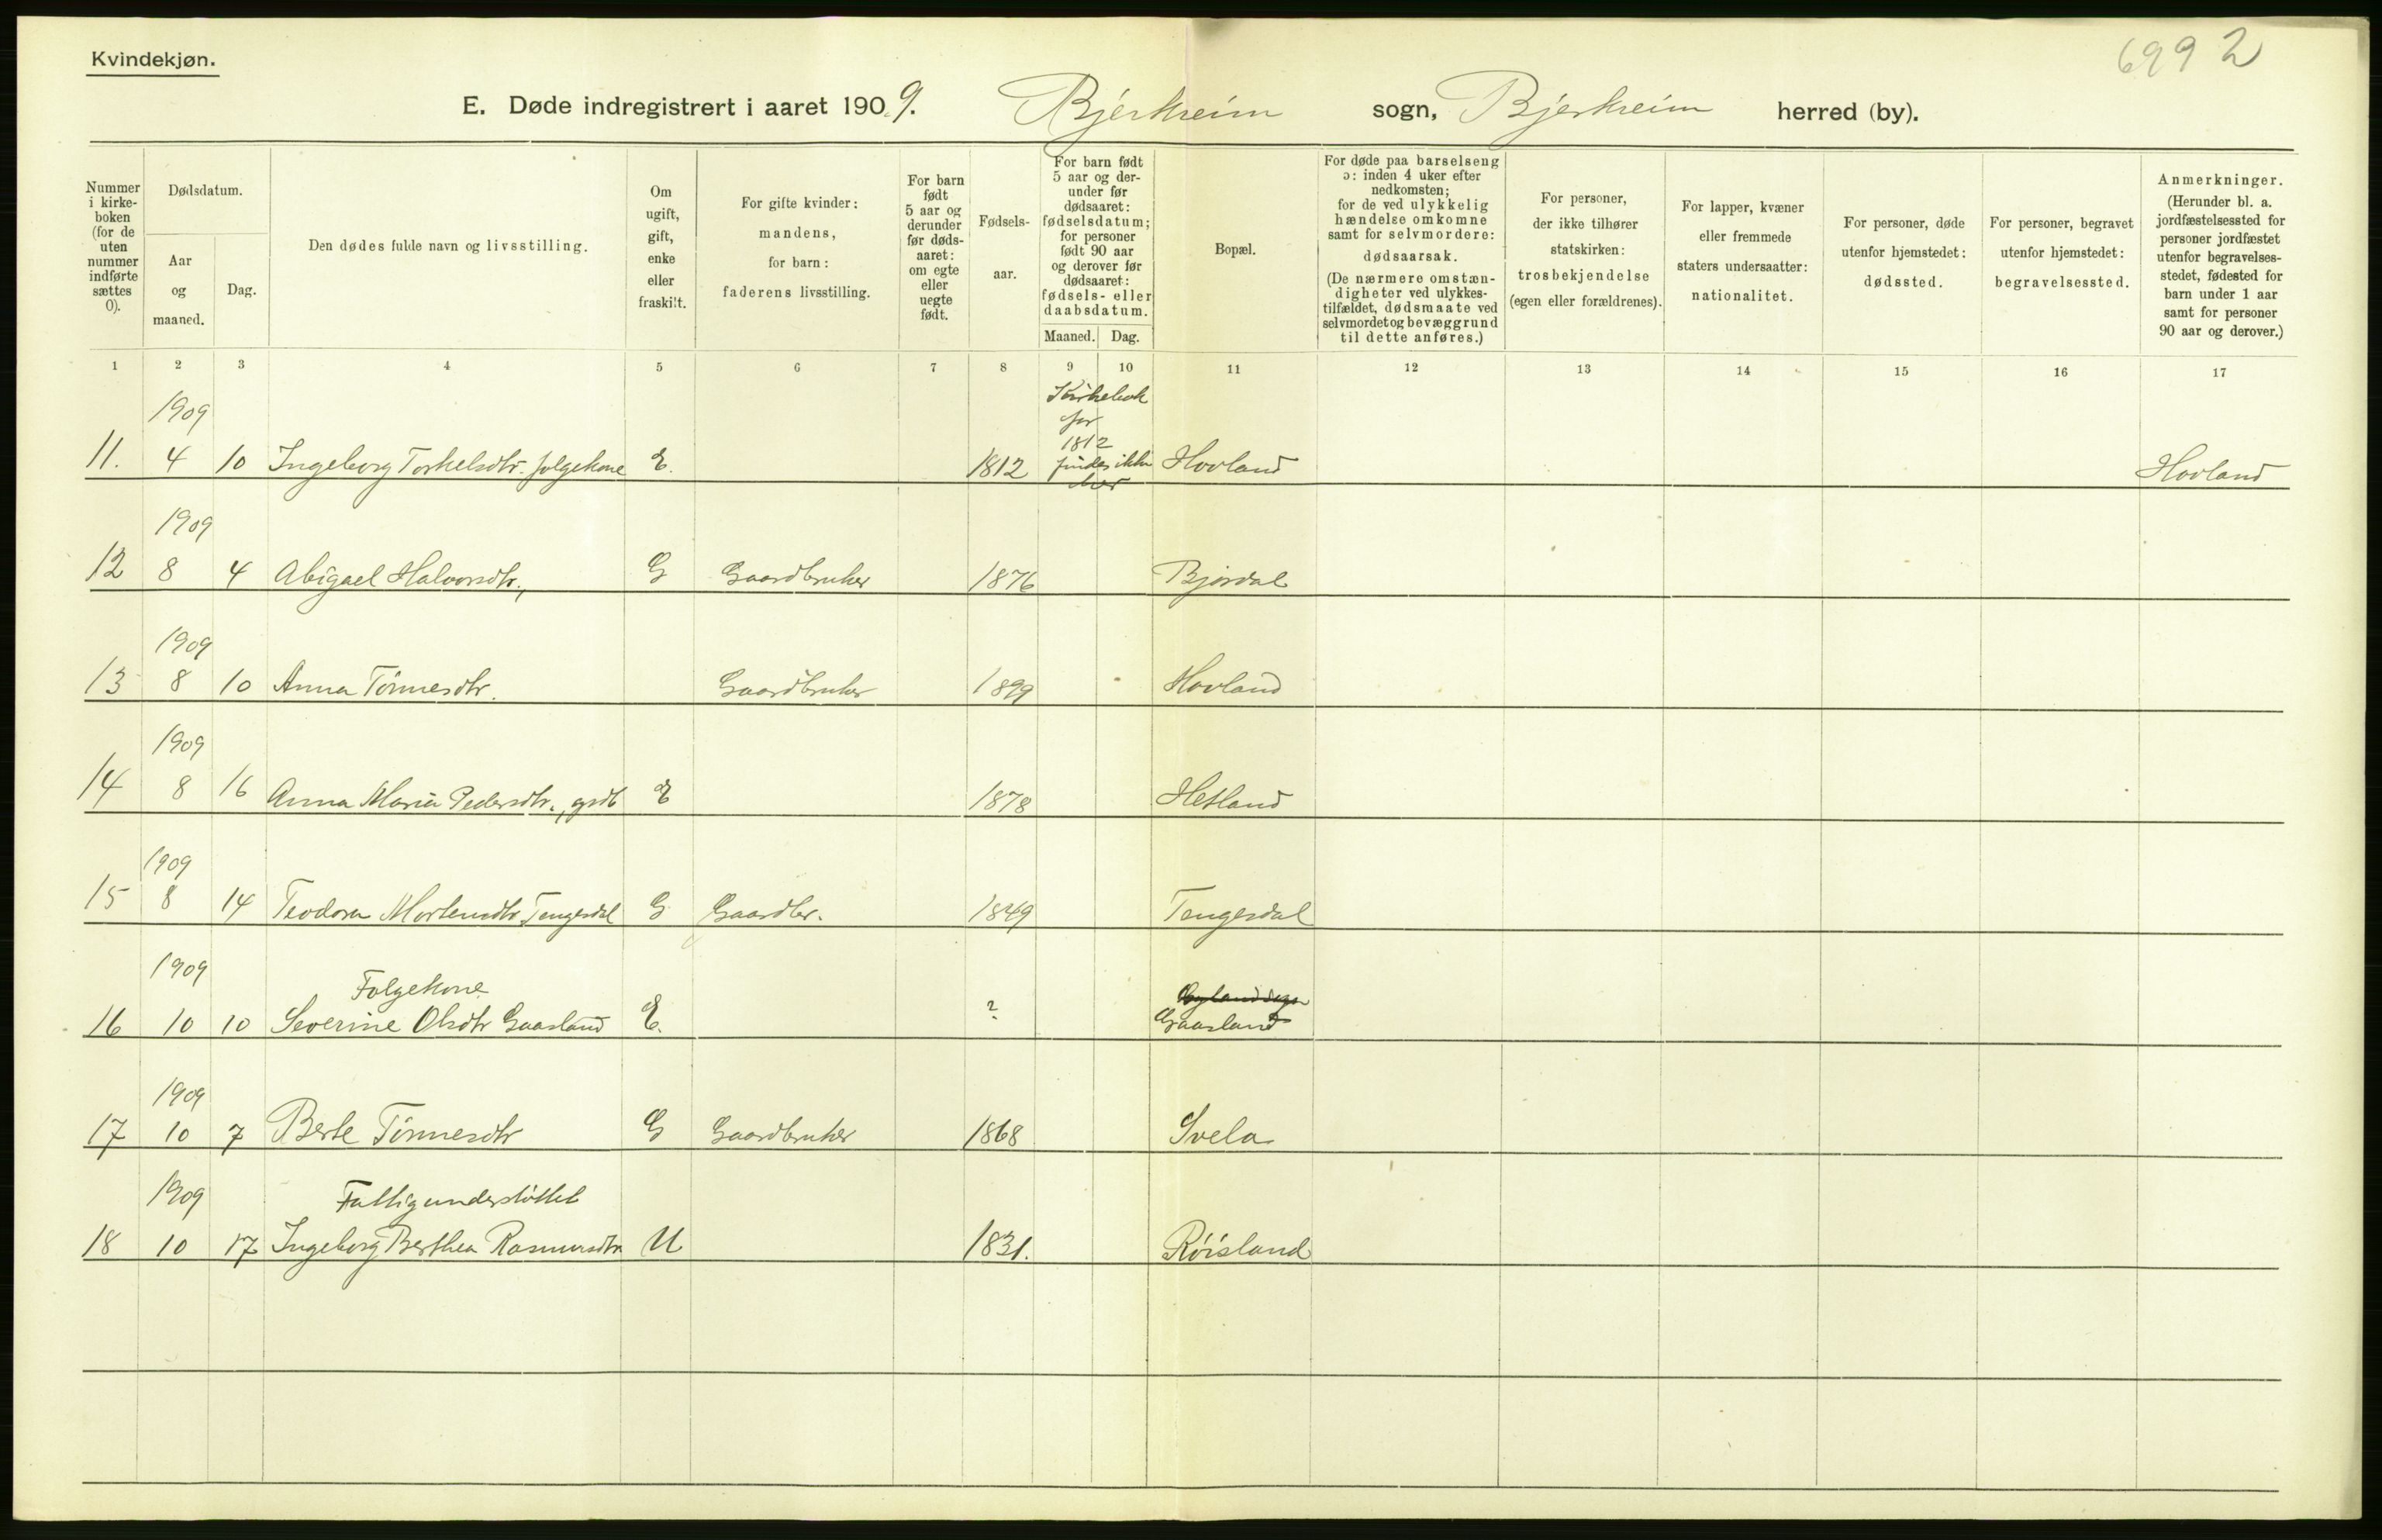 Kvindekjøn.
6992
E. Døde indregistrert i aaret 1909. Bjerkreim sogn, Bjerkreim herred (by).
Nummer i kirkeboken (for de uten nummer indførte sættes 0).
Dødsdatum.
Aar og maaned.
Dag.
Den dødes fulde navn og livsstilling.
Om ugift, gift, enke eller fraskilt.
For gifte kvinder: mandens, for barn: faderens livsstilling.
For barn født 5 aar og derunder før dødsaaret: om egte eller uegte født.
Fødselsaar.
For barn født 5 aar og derunder før dødsaaret: fødselsdatum; for personer født 90 aar og derover før dødsaaret: fødsels- eller daabsdatum.
Maaned. Dag.
Bopæl.
For døde paa barselseng ɔ: inden 4 uker efter nedkomsten; for de ved ulykkelig hændelse omkomne samt for selvmordere: dødsaarsak. (De nærmere omstændigheter ved ulykkestilfældet, dødsmaate ved selvmordet og bevæggrund til dette anføres.)
For personer, der ikke tilhører statskirken: trosbekjendelse (egen eller forældrenes).
For lapper, kvæner eller fremmede staters undersaatter: nationalitet.
For personer, døde utenfor hjemstedet: dødssted.
For personer, begravet utenfor hjemstedet: begravelsessted.
Anmerkninger. (Herunder bl. a. jordfæstelsessted for personer jordfæstet utenfor begravelsesstedet, fødested for barn under 1 aar samt for personer 90 aar og derover.)
1 2 3 4 5 6 7 8 9 10 11 12 13 14 15 16 17
1909 Kirkebok for 1812 findes ikke her
11. 4 10 Ingeborg Torkelsdtr. folgekone E. 1812 Hovland Hovland
1909
12 8 4 Abigael Halvorsdtr., G Gaardbruker 1876 Bjordal
1909
13 8 10 Anna Tönnesdtr. Gaardbruker 1899 Hovland
1909
14 8 16 Anna Maria Pedersdtr., E 1878 Hetland
1909
15 8 14 Teodora Mortensdtr Tengesdal G Gaardbr. 1849 Tengesdal
1909 Folgekone
16 10 10 Severine Olsdtr Gaasland E. ? Gaasland
1909
17 10 7 Berte Tönnesdtr G Gaardbruker 1868 Svela
1909 Fattigunderstöttet
18 10 17 Ingeborg Berthea Rasmusdtr U 1831. Röisland